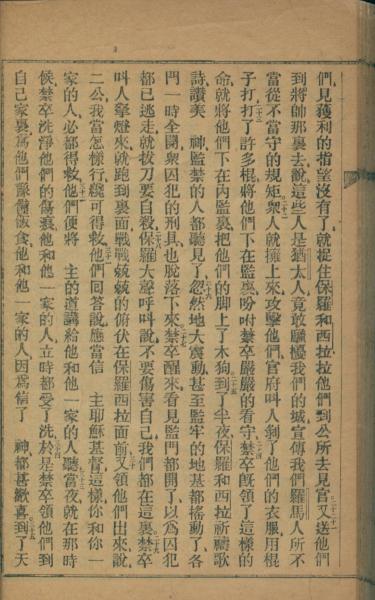 們見獲利的指望沒有了就捉住保羅和西拉拉他們到公所去見官二十又送他們
到將帥那裏去說這些人是猶太人竟敢騷擾我們的城二十一宣傳我們羅馬人所不
當從不當守的規矩二十二衆人就擁上來攻擊他們官府叫人剝了他們的衣服用棍
子打二十三打了許多棍將他們下在監裏吩咐禁卒嚴嚴的看守二十四禁卒旣領了這樣的
命就將他們下在內監裏把他們的脚上了木狗二十五到了半夜保羅和西拉祈禱歌
詩讚美 神監禁的人都聽見了二十六忽然地大震動甚至監牢的地基都搖動了各
門一時全開衆囚犯的刑具也脫落下來二十七禁卒醒來看見監門都開了以爲囚犯
都已逃走就拔刀要自殺二十八保羅大聲呼叫說不要傷害自己我們都在這裏二十九禁卒
叫人拏燈來就跑到裏面戰戰兢兢的俯伏在保羅西拉面前三十又領他們出來說
二公我當怎樣行纔可得救三十一他們回答說應當信 主耶穌基督這樣你和你一
家的人必都得救三十二他們便將 主的道講給他和他一家的人聽三十三當夜就在那時
候禁卒洗淨他們的傷痕他和他一家的人立時都受了洗三十四於是禁卒領他們到
自己家裏爲他們豫備飯食他和他一家的人因爲信了 神都甚歡喜三十五到了天